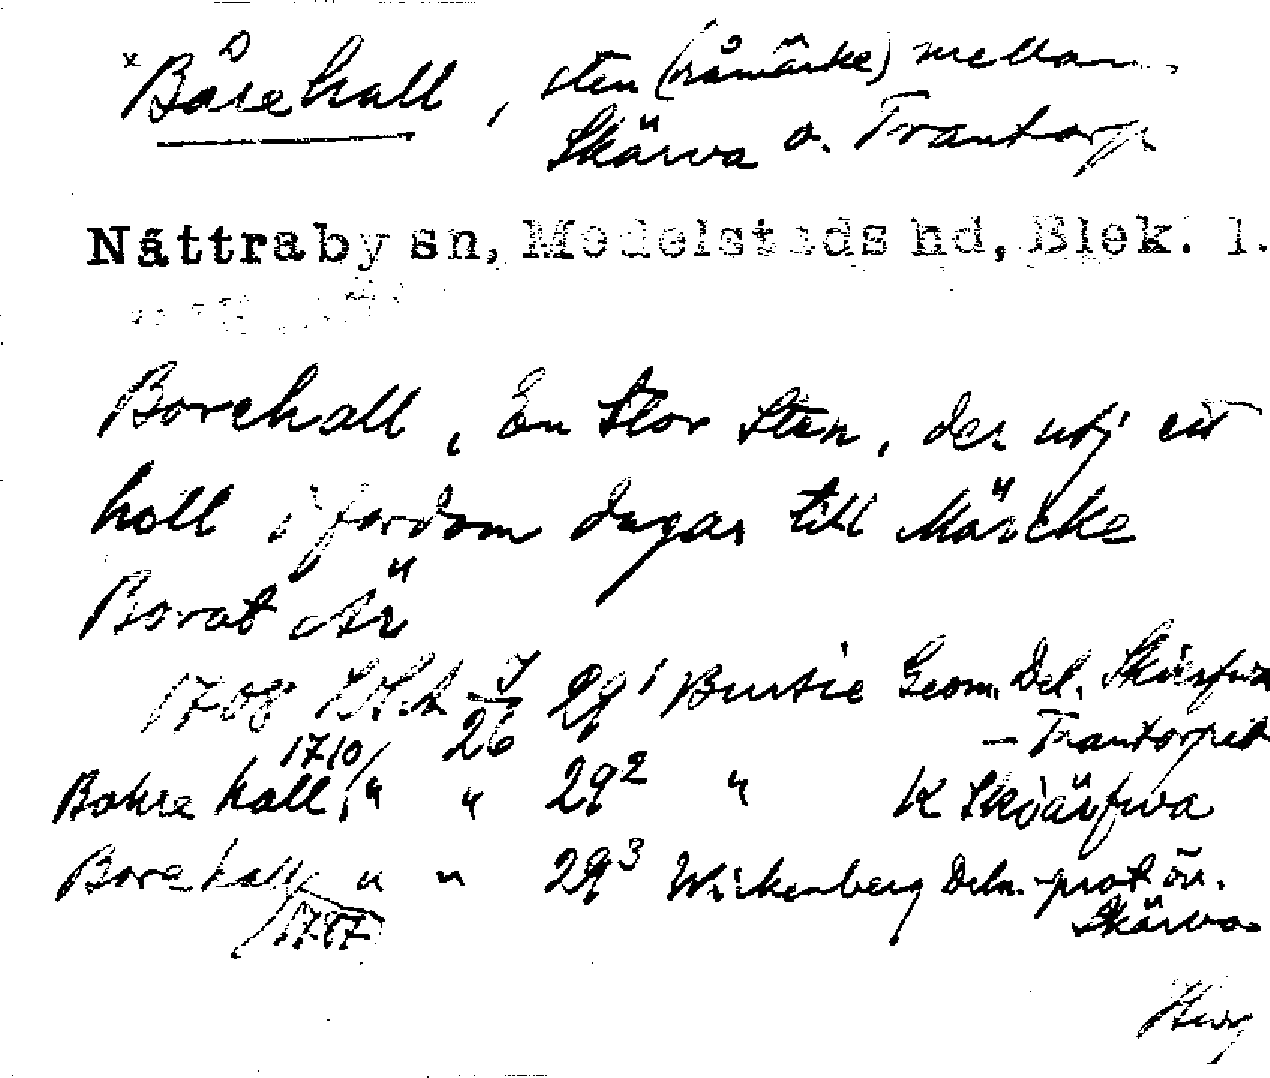 × Bårehall, sten (råmärke) mellan
Skärva o. Trantorp
Nättraby sn, Medelstads hd, Blek. l.
Borehall, En Stor Sten, der utj ett
holl i fordom dagar till Märcke
Borat Är
1708 29¹ Geom. Del. Skierfwa
26
— Trantorpet
Bohre hall 1710 " " 29² " K Skiärfwa
Borehall " " 29³ Wirkenberg Deln.-prot ör.
1787 Skärva